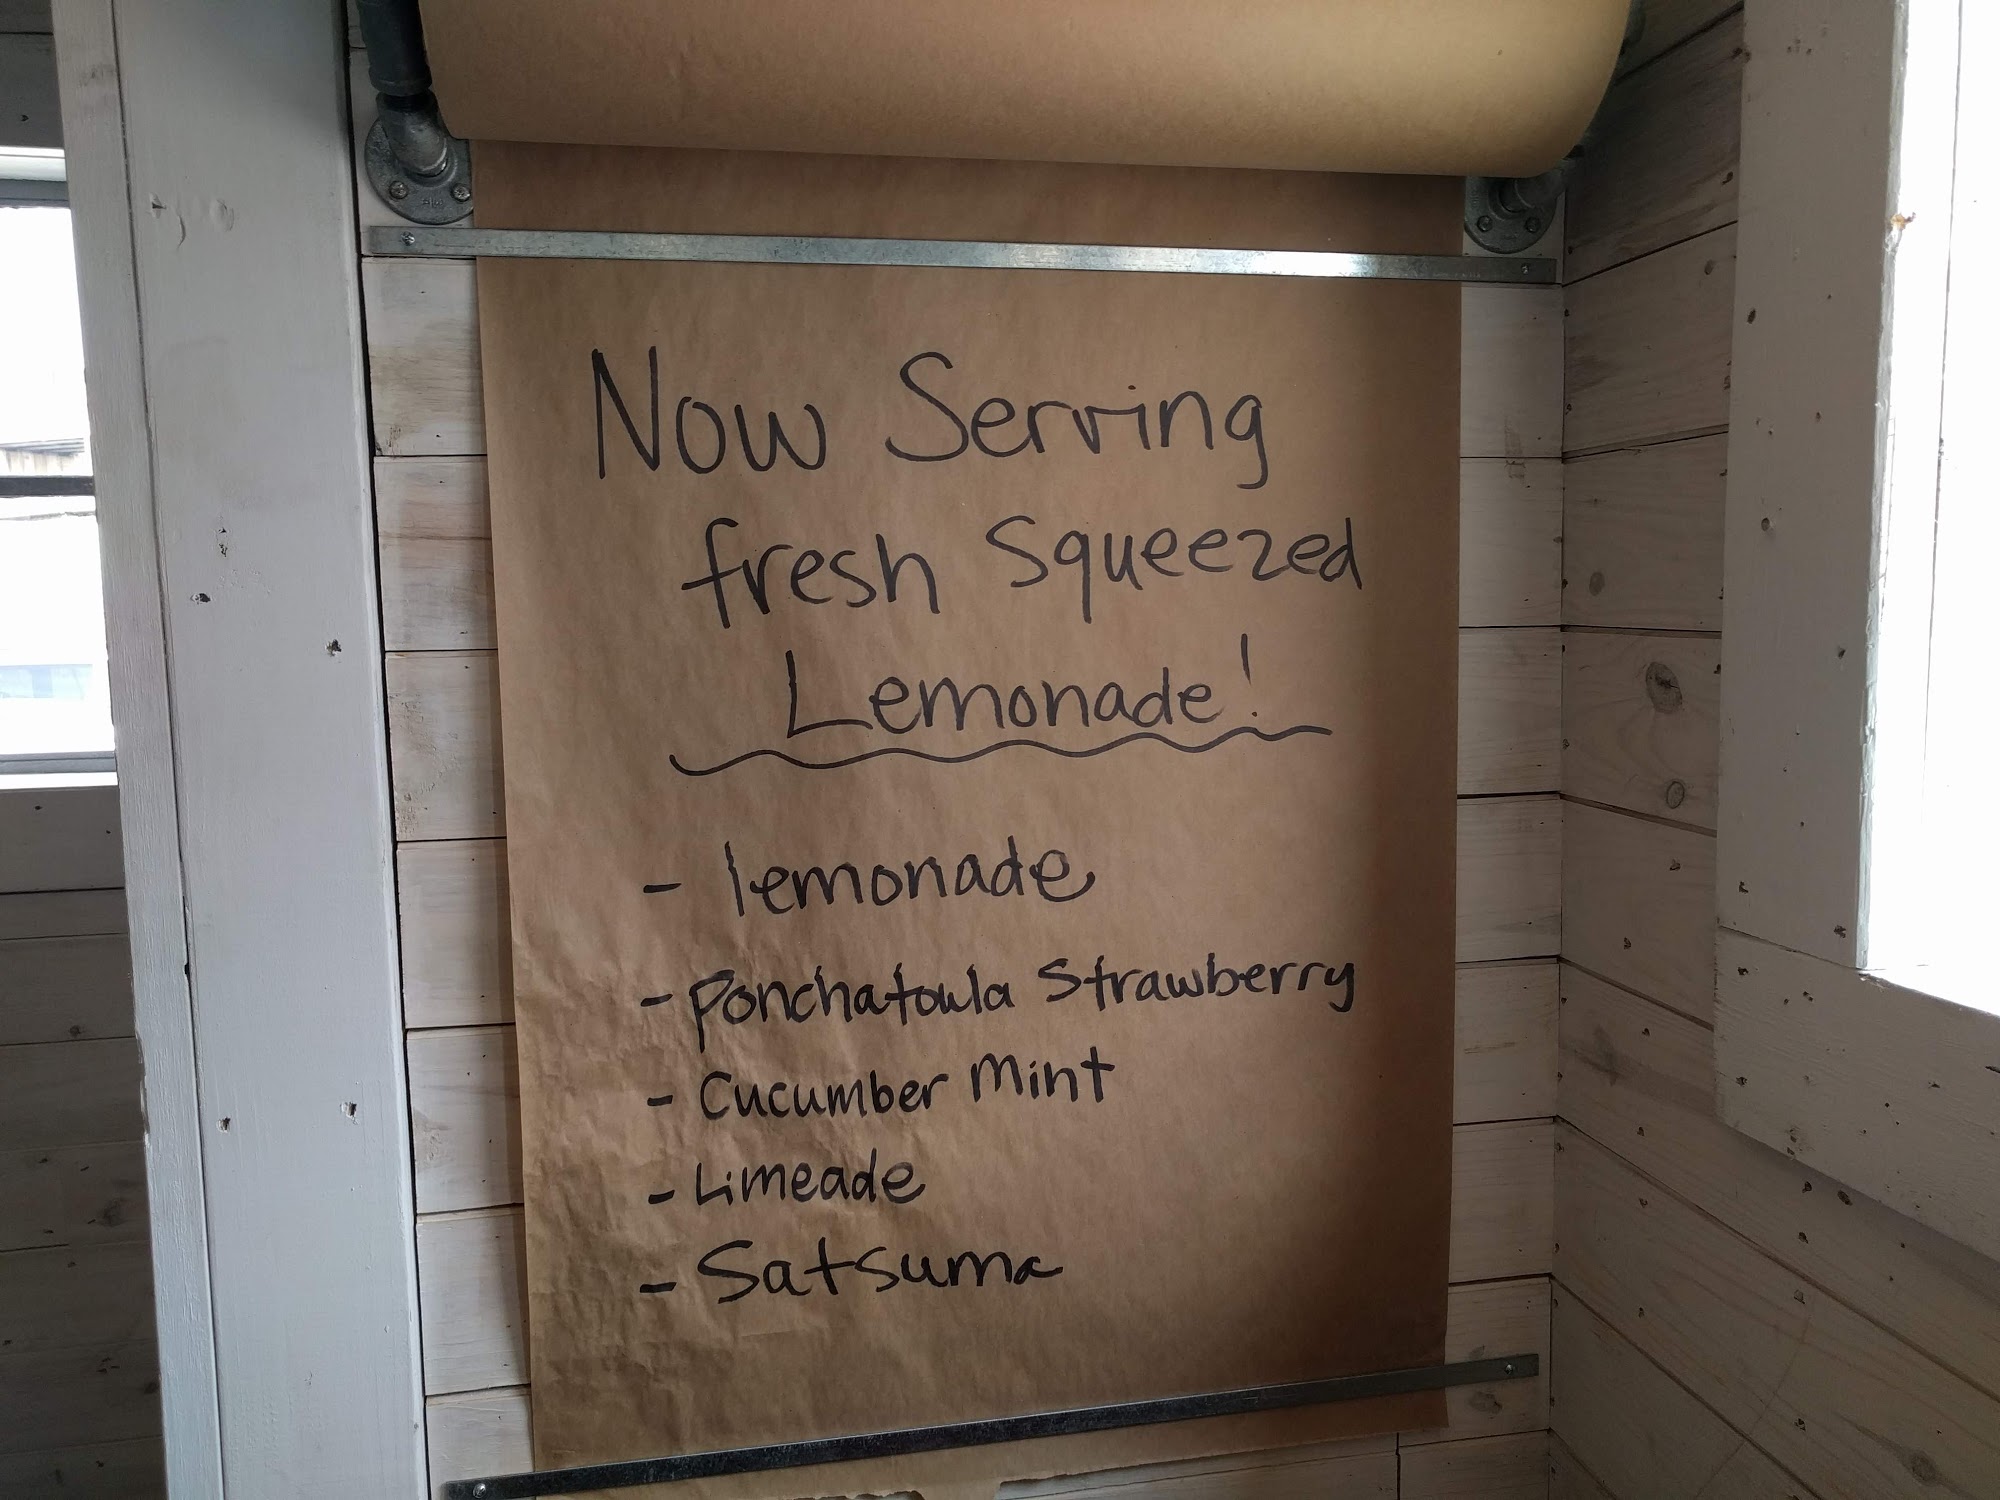 Now Serving
fresh Squeezed
Lemonade!
- lemonade
- Ponchatoula Strawberry
- Cucumber Mint
- Limeade
- Satsuma